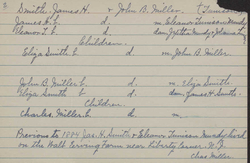 Smith, James H. & John B. Miller (Tenison)
James H. S. d. m. Eleanor Tenison Mundy
Eleanor T. S. d. dau.
Children.
Eliza Smith S. d. m John B. Miller.
John B. Miller S. d. m. Eliza Smith.
Eliza Smith S. d. dau James H. Smith.
Children
Charles. Miller S. d. m.
Previous to 1884 Jas. H. Smith & Eleanor Tenison Mundy lived
on the Walt Ewing Farm near Liberty Corner. N. J.
Chas Miller